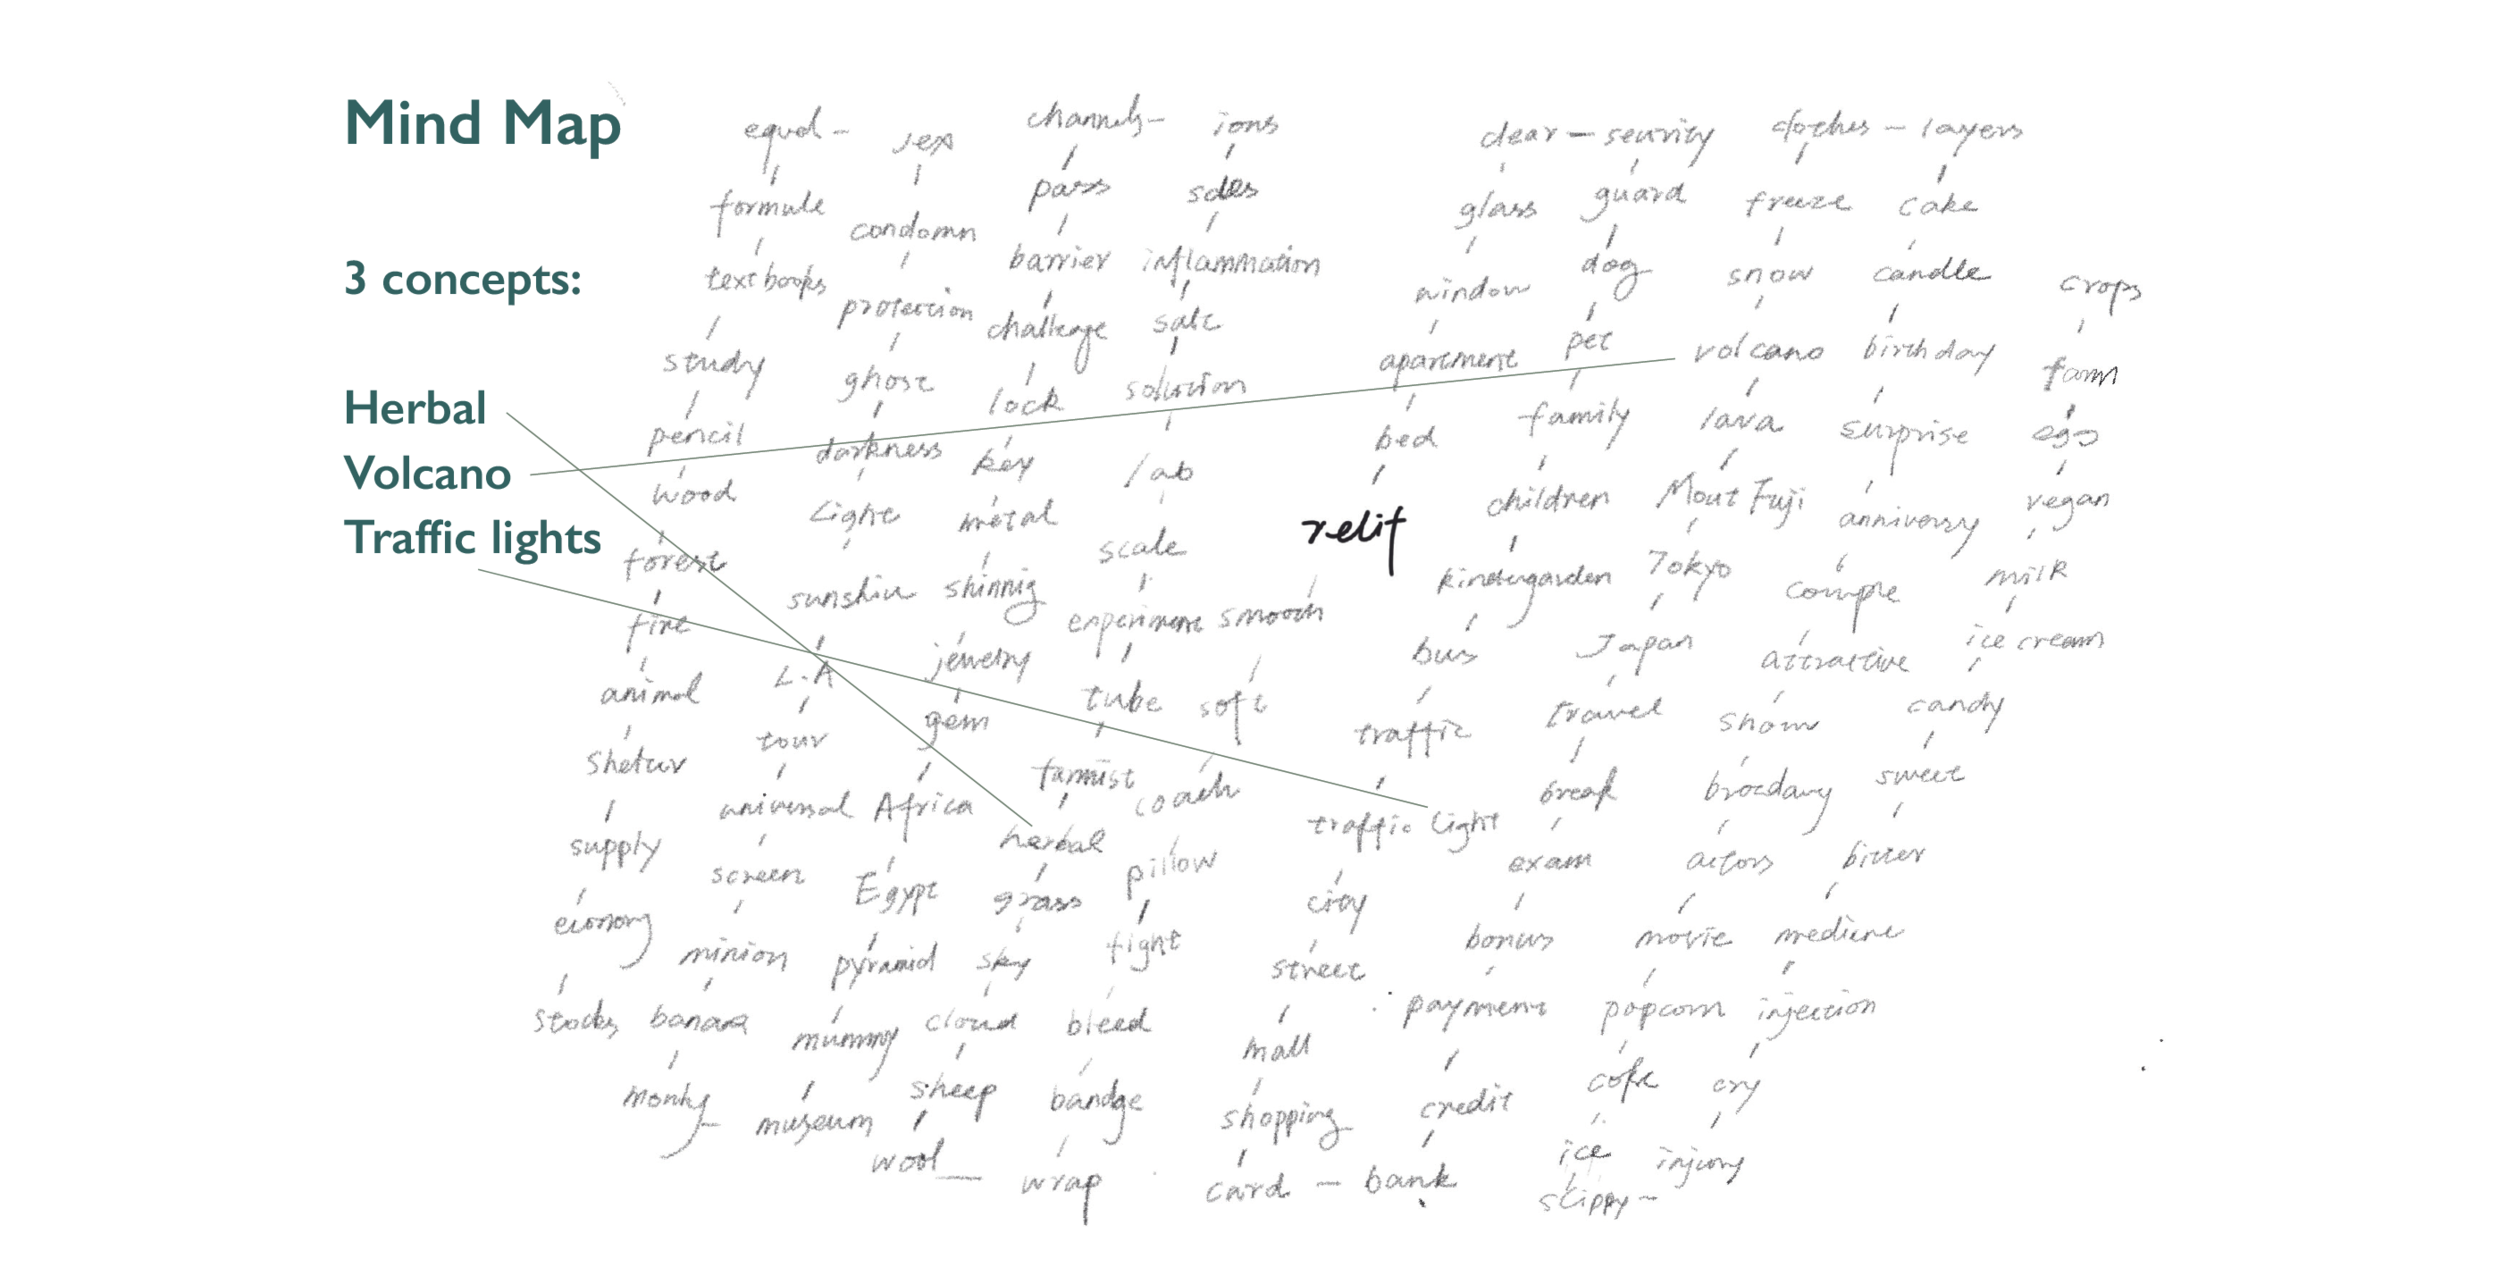 Mind Map
3 concepts:
Herbal
Volcano
Traffic lights
relif
smooth
soft
coach
pillow
fight
bleed
bandge
wrap
wool
sheep
cloud
sky
grass
herbal
tube
experiment
scale
lab
solution
salt
inflammation
ions
channels
pass
barrier
challenge
lock
key
metal
shinnig
jewelry
gem
Africa
Egypt
pyramid
mummy
museum
monky
banana
minion
screen
universal
tour
L.A
sunshin
Light
darkness
ghost
protection
condomn
sex
equal
formule
textbooks
study
pencil
wood
forest
fire
animal
supply
stocks
kindergarden
bus
traffic
traffic light
city
street
mall
shopping
card - bank
credit
payment
bonus
exam
break
travel
Japan
Tokyo
Mout Fuji
lava
volcano
snow
freeze
clothes - layers
cake
candle
birthday
surprise
anniversy
couple
attractive
show
actors
movie
popcorn
coke
ice
slippy
injury
cry
injection
bitter
sweet
candy
ice cream
milk
vegan
egg
farm
crops
clear - security
glass
window
apartment
bed
guard
dog
pet
family
children